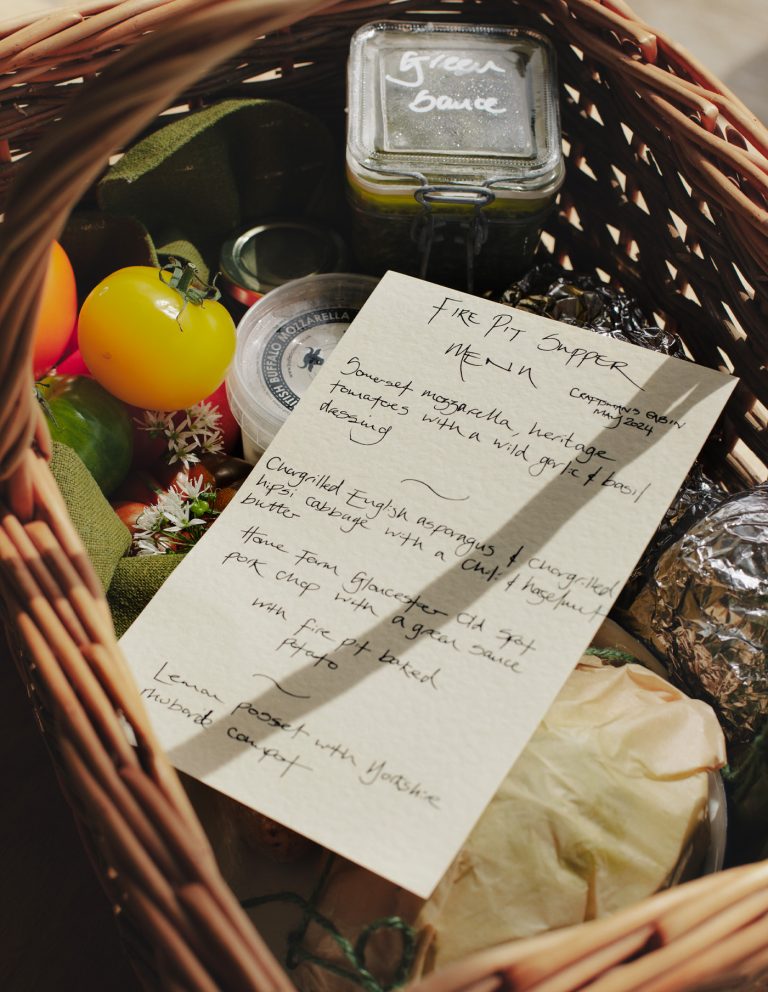 Green
Sauce
BRITISH BUFFALO MOZZARELLA
FIRE PIT SUPPER
MENU
CRAFTSMANS CABIN
MAY 2024
Somerset mozzarella, heritage
tomatoes with a wild garlic & basil
dressing
Chargrilled English asparagus & chargrilled
hipsi cabbage with a chili & hazelnut
butter
Home Farm Gloucester Old Spot
pork chop with a green sauce
with fire pit baked
potato
Lemon posset with Yorkshire
rhubarb compot